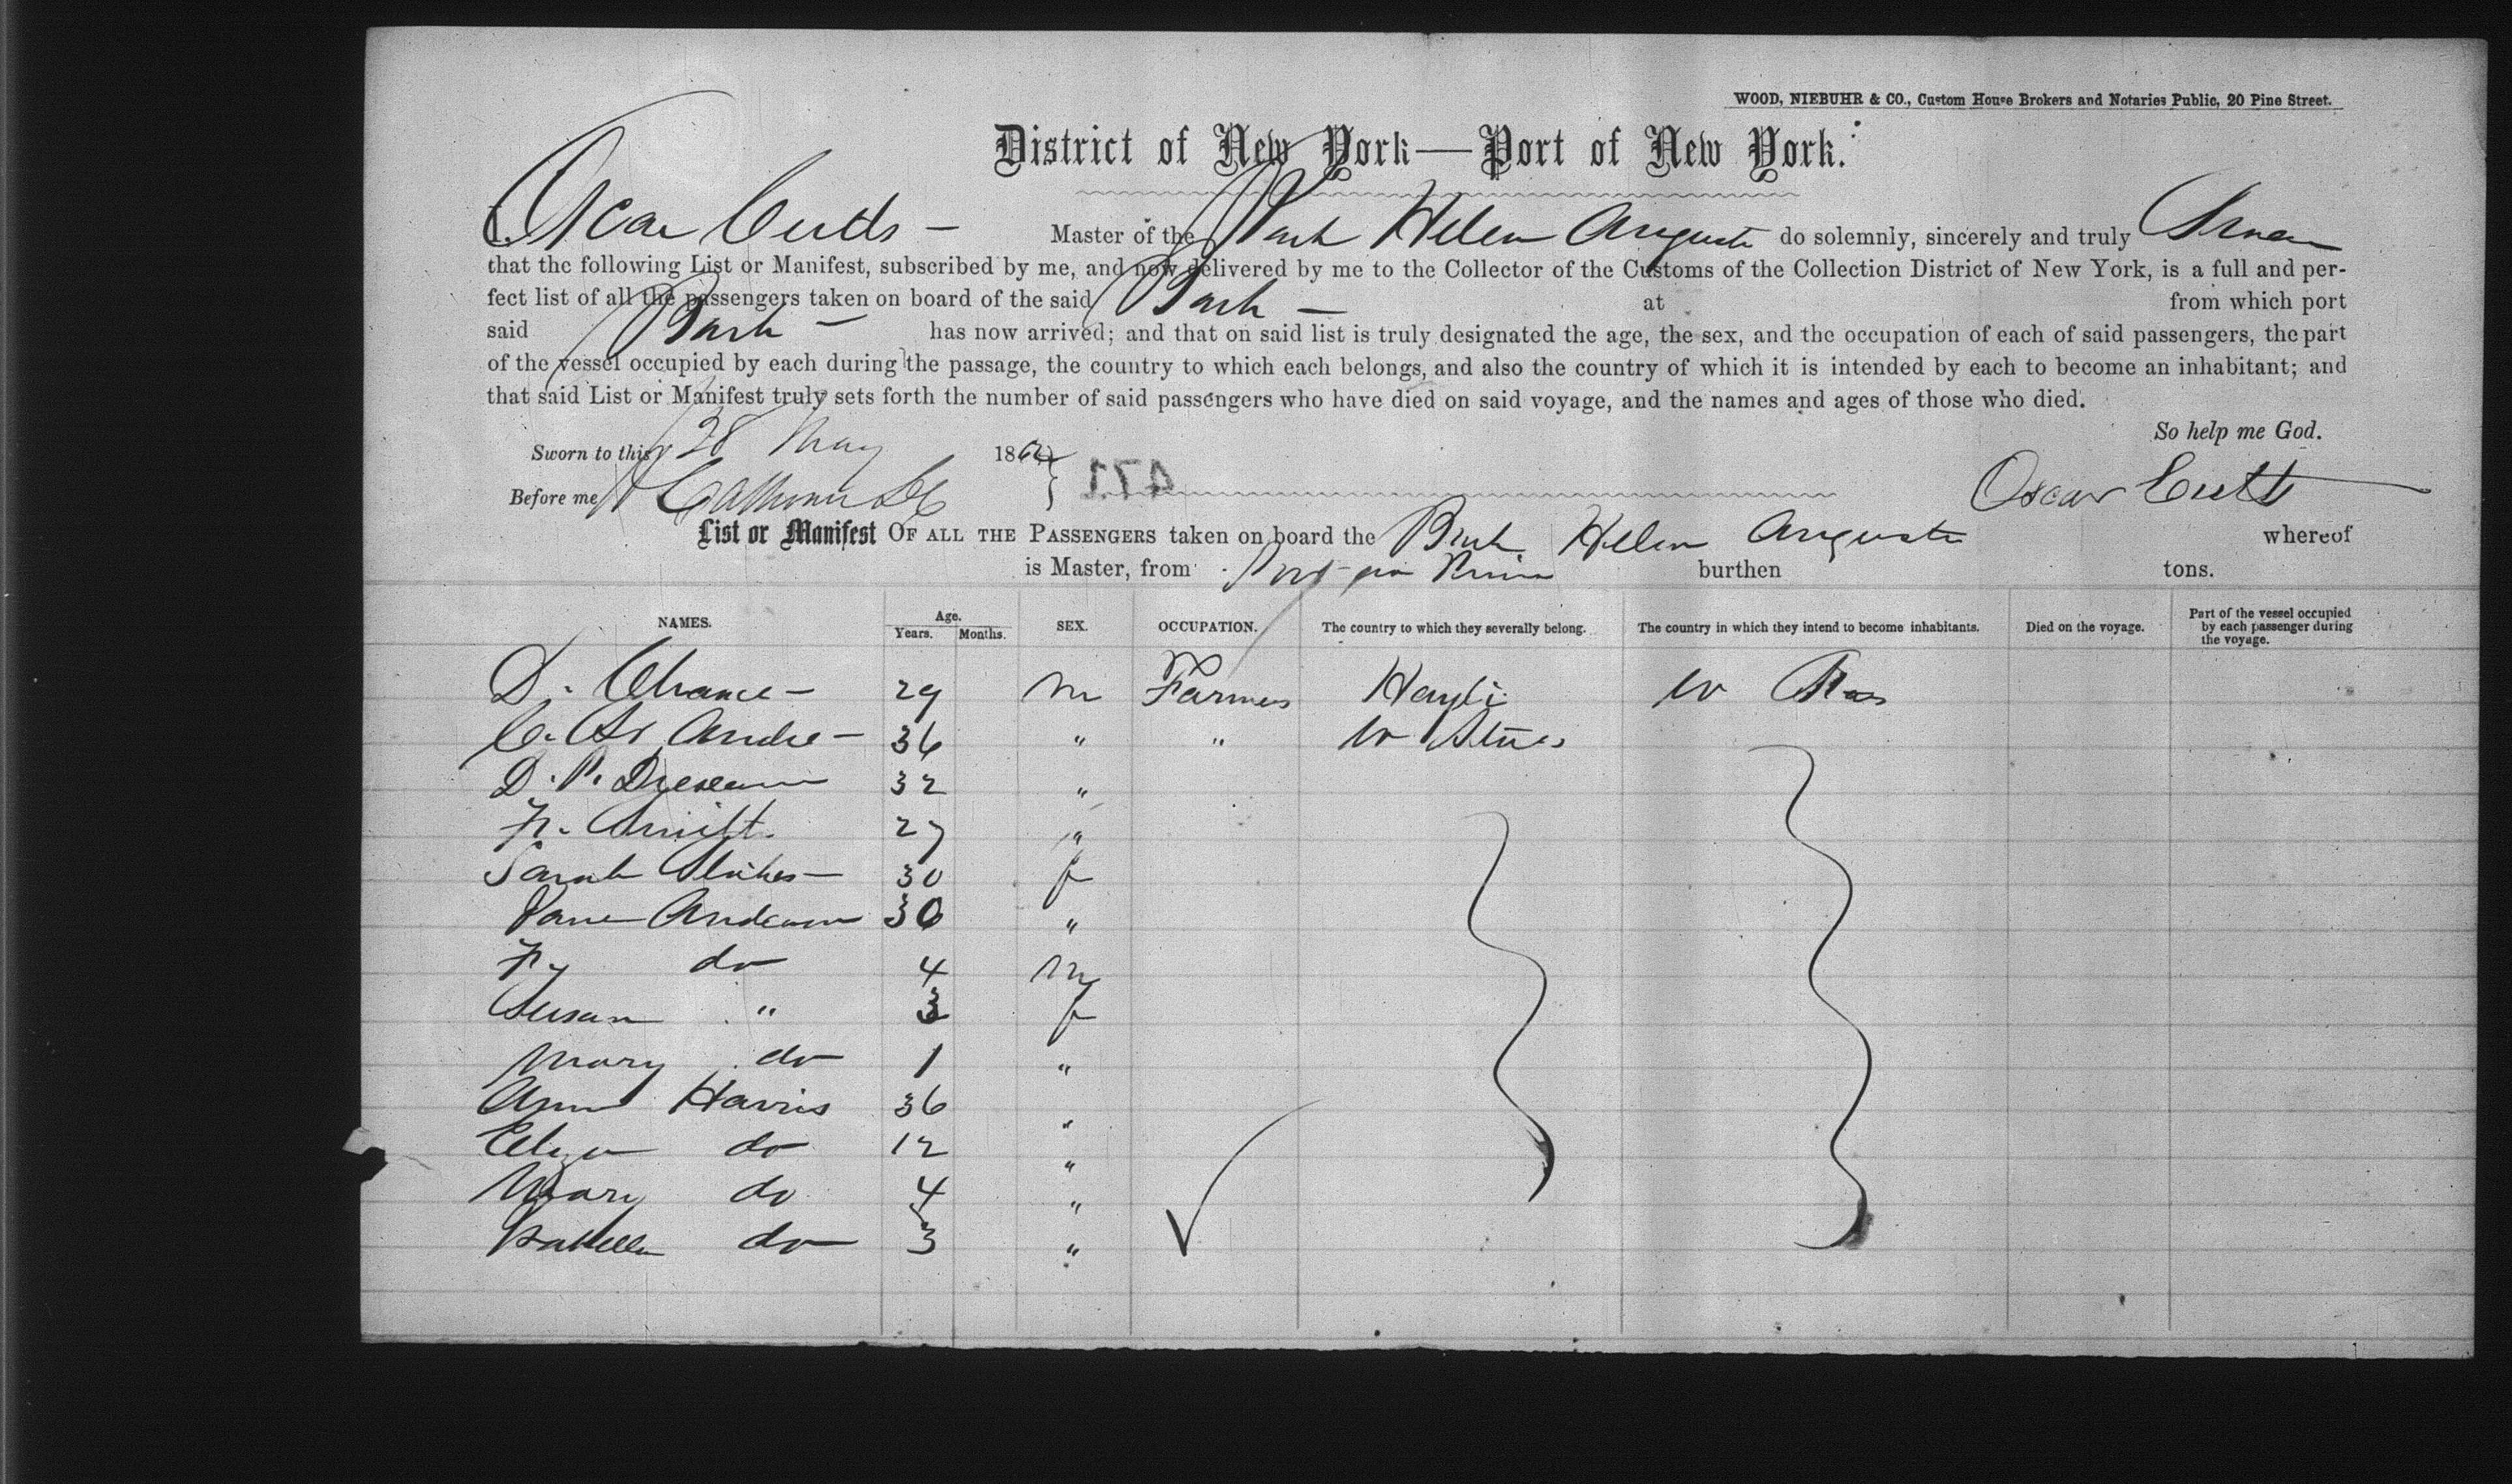 WOOD, NIEBUHR & CO., Custom House Brokers and Notaries Public, 20 Pine Street.
District of New York—Port of New York.
I, Oscar Cutts — Master of the Bark Helen Augusta do solemnly, sincerely and truly Swear
that the following List or Manifest, subscribed by me, and now delivered by me to the Collector of the Customs of the Collection District of New York, is a full and per-
fect list of all the passengers taken on board of the said Bark — at from which port
said Bark — has now arrived; and that on said list is truly designated the age, the sex, and the occupation of each of said passengers, the part
of the vessel occupied by each during the passage, the country to which each belongs, and also the country of which it is intended by each to become an inhabitant; and
that said List or Manifest truly sets forth the number of said passengers who have died on said voyage, and the names and ages of those who died.
So help me God.
Sworn to this 28 May 1862
471
Before me Oscar Cutts
List or Manifest OF ALL THE PASSENGERS taken on board the Bark Helen Augusta whereof
is Master, from Port au burthen tons.
NAMES. Age. Years. Months. SEX. OCCUPATION. The country to which they severally belong. The country in which they intend to become inhabitants. Died on the voyage. Part of the vessel occupied by each passenger during the voyage.
D. Chance — 29 m Farmer Hayti
C. St Andre — 36 " " States
D. P. 32 "
27 "
Sarah Stokes — 30 f
Jane Anderson 30 "
Fr do 4 m
Susan " 3 f
Mary do 1 "
Ann Harris 36 "
Eliza do 12 "
Mary do 4 "
Isabella do 3 "